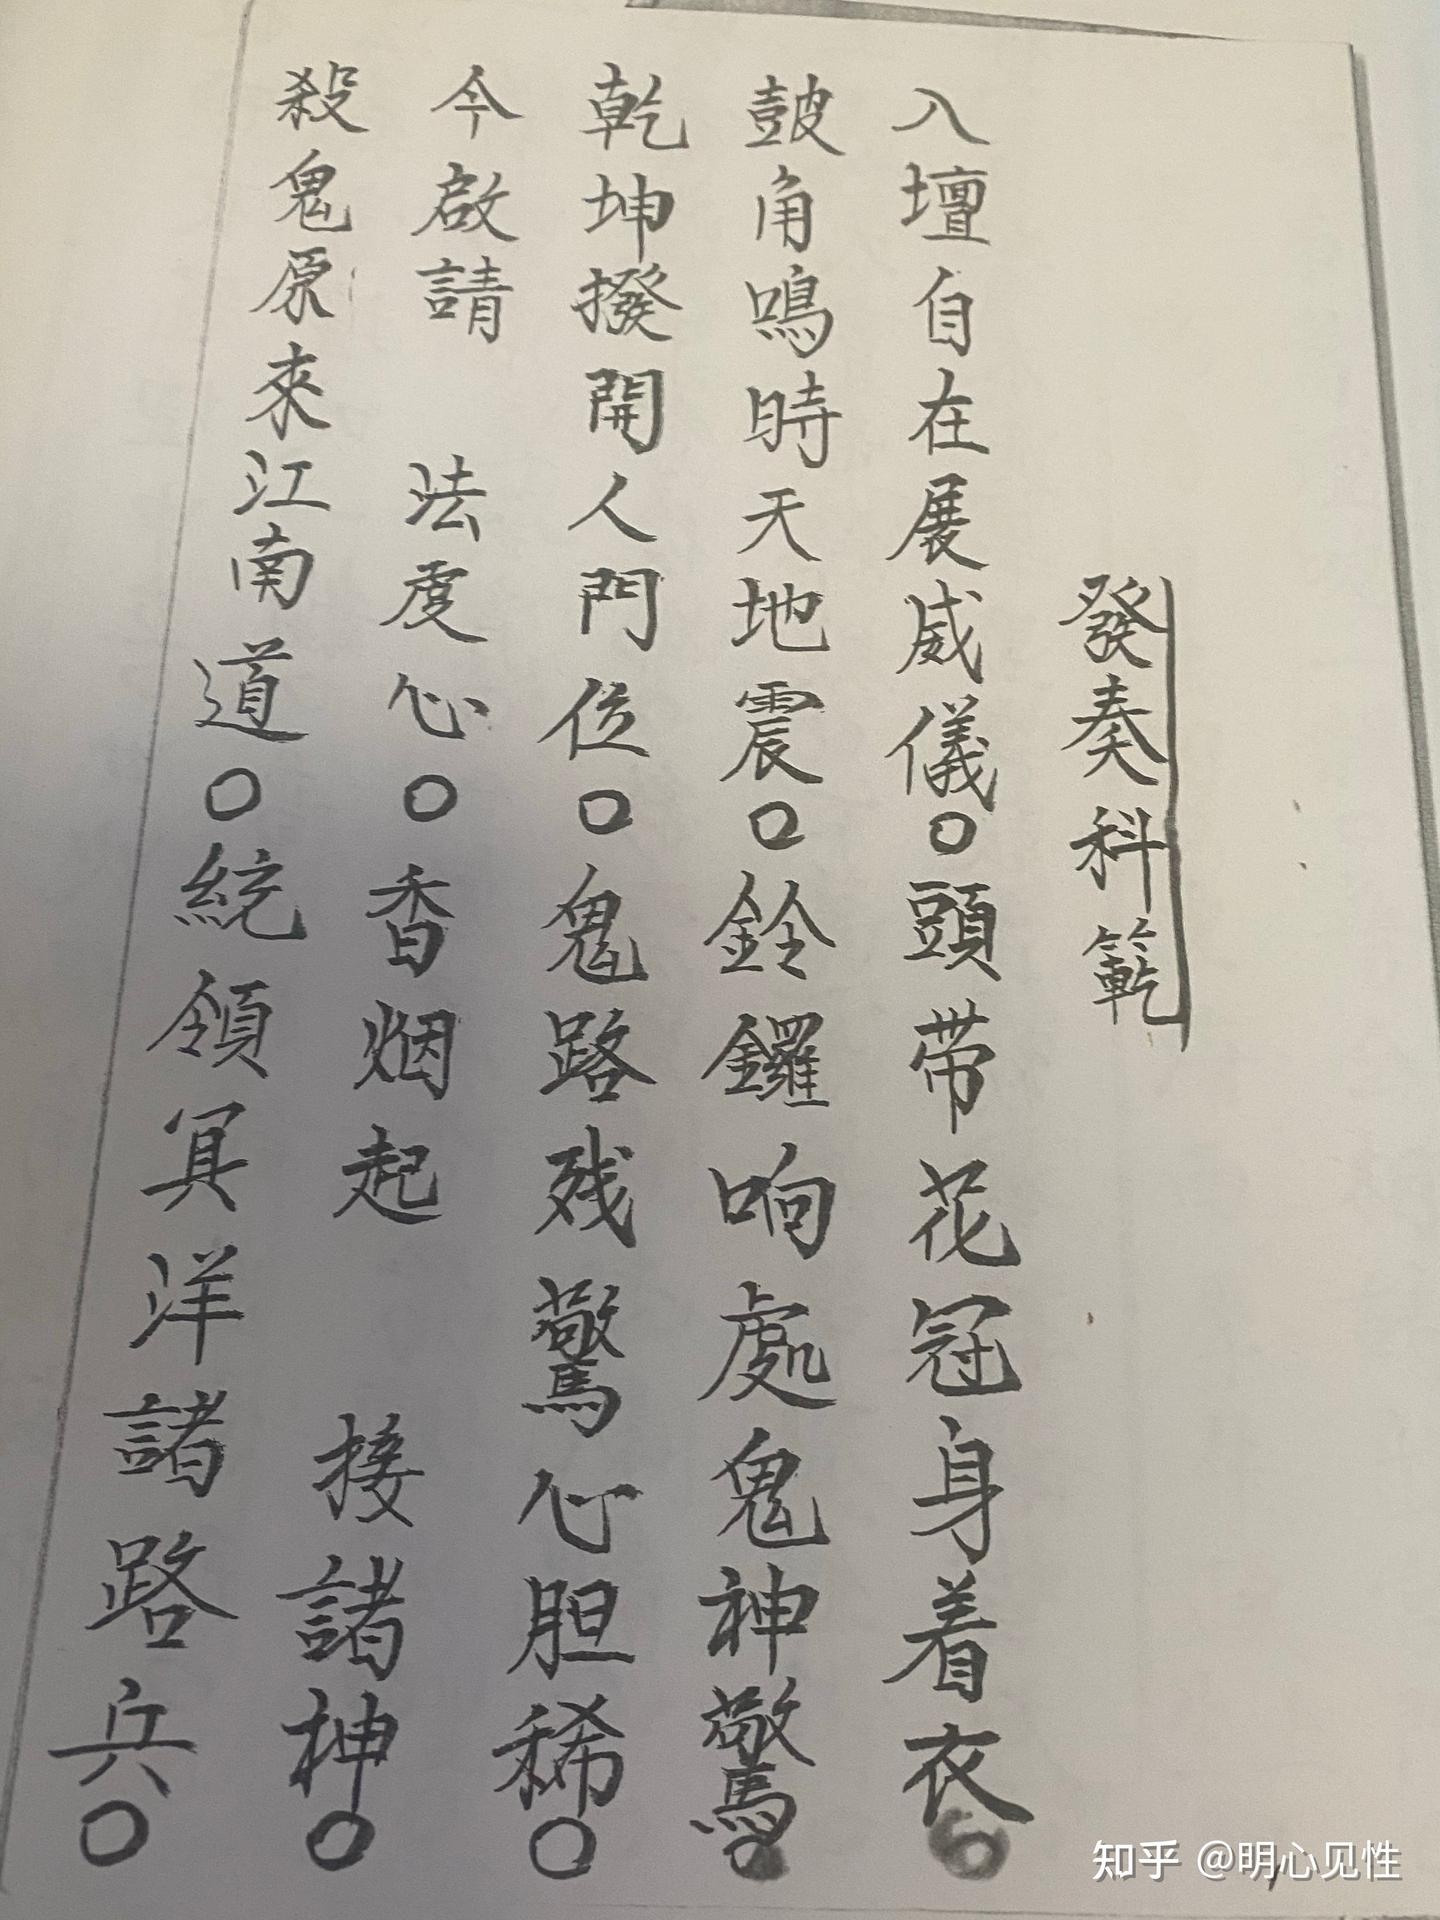 發奏科範
入壇自在展威儀○頭带花冠身着衣○
鼓角鳴時天地震○鈴鑼响處鬼神驚○
乾坤撥開人門位○鬼路残驚心胆稀○
今啟請 法度心○香烟起 接諸神○
殺鬼原來江南道○統領冥洋諸路兵○
知乎 @明心见性